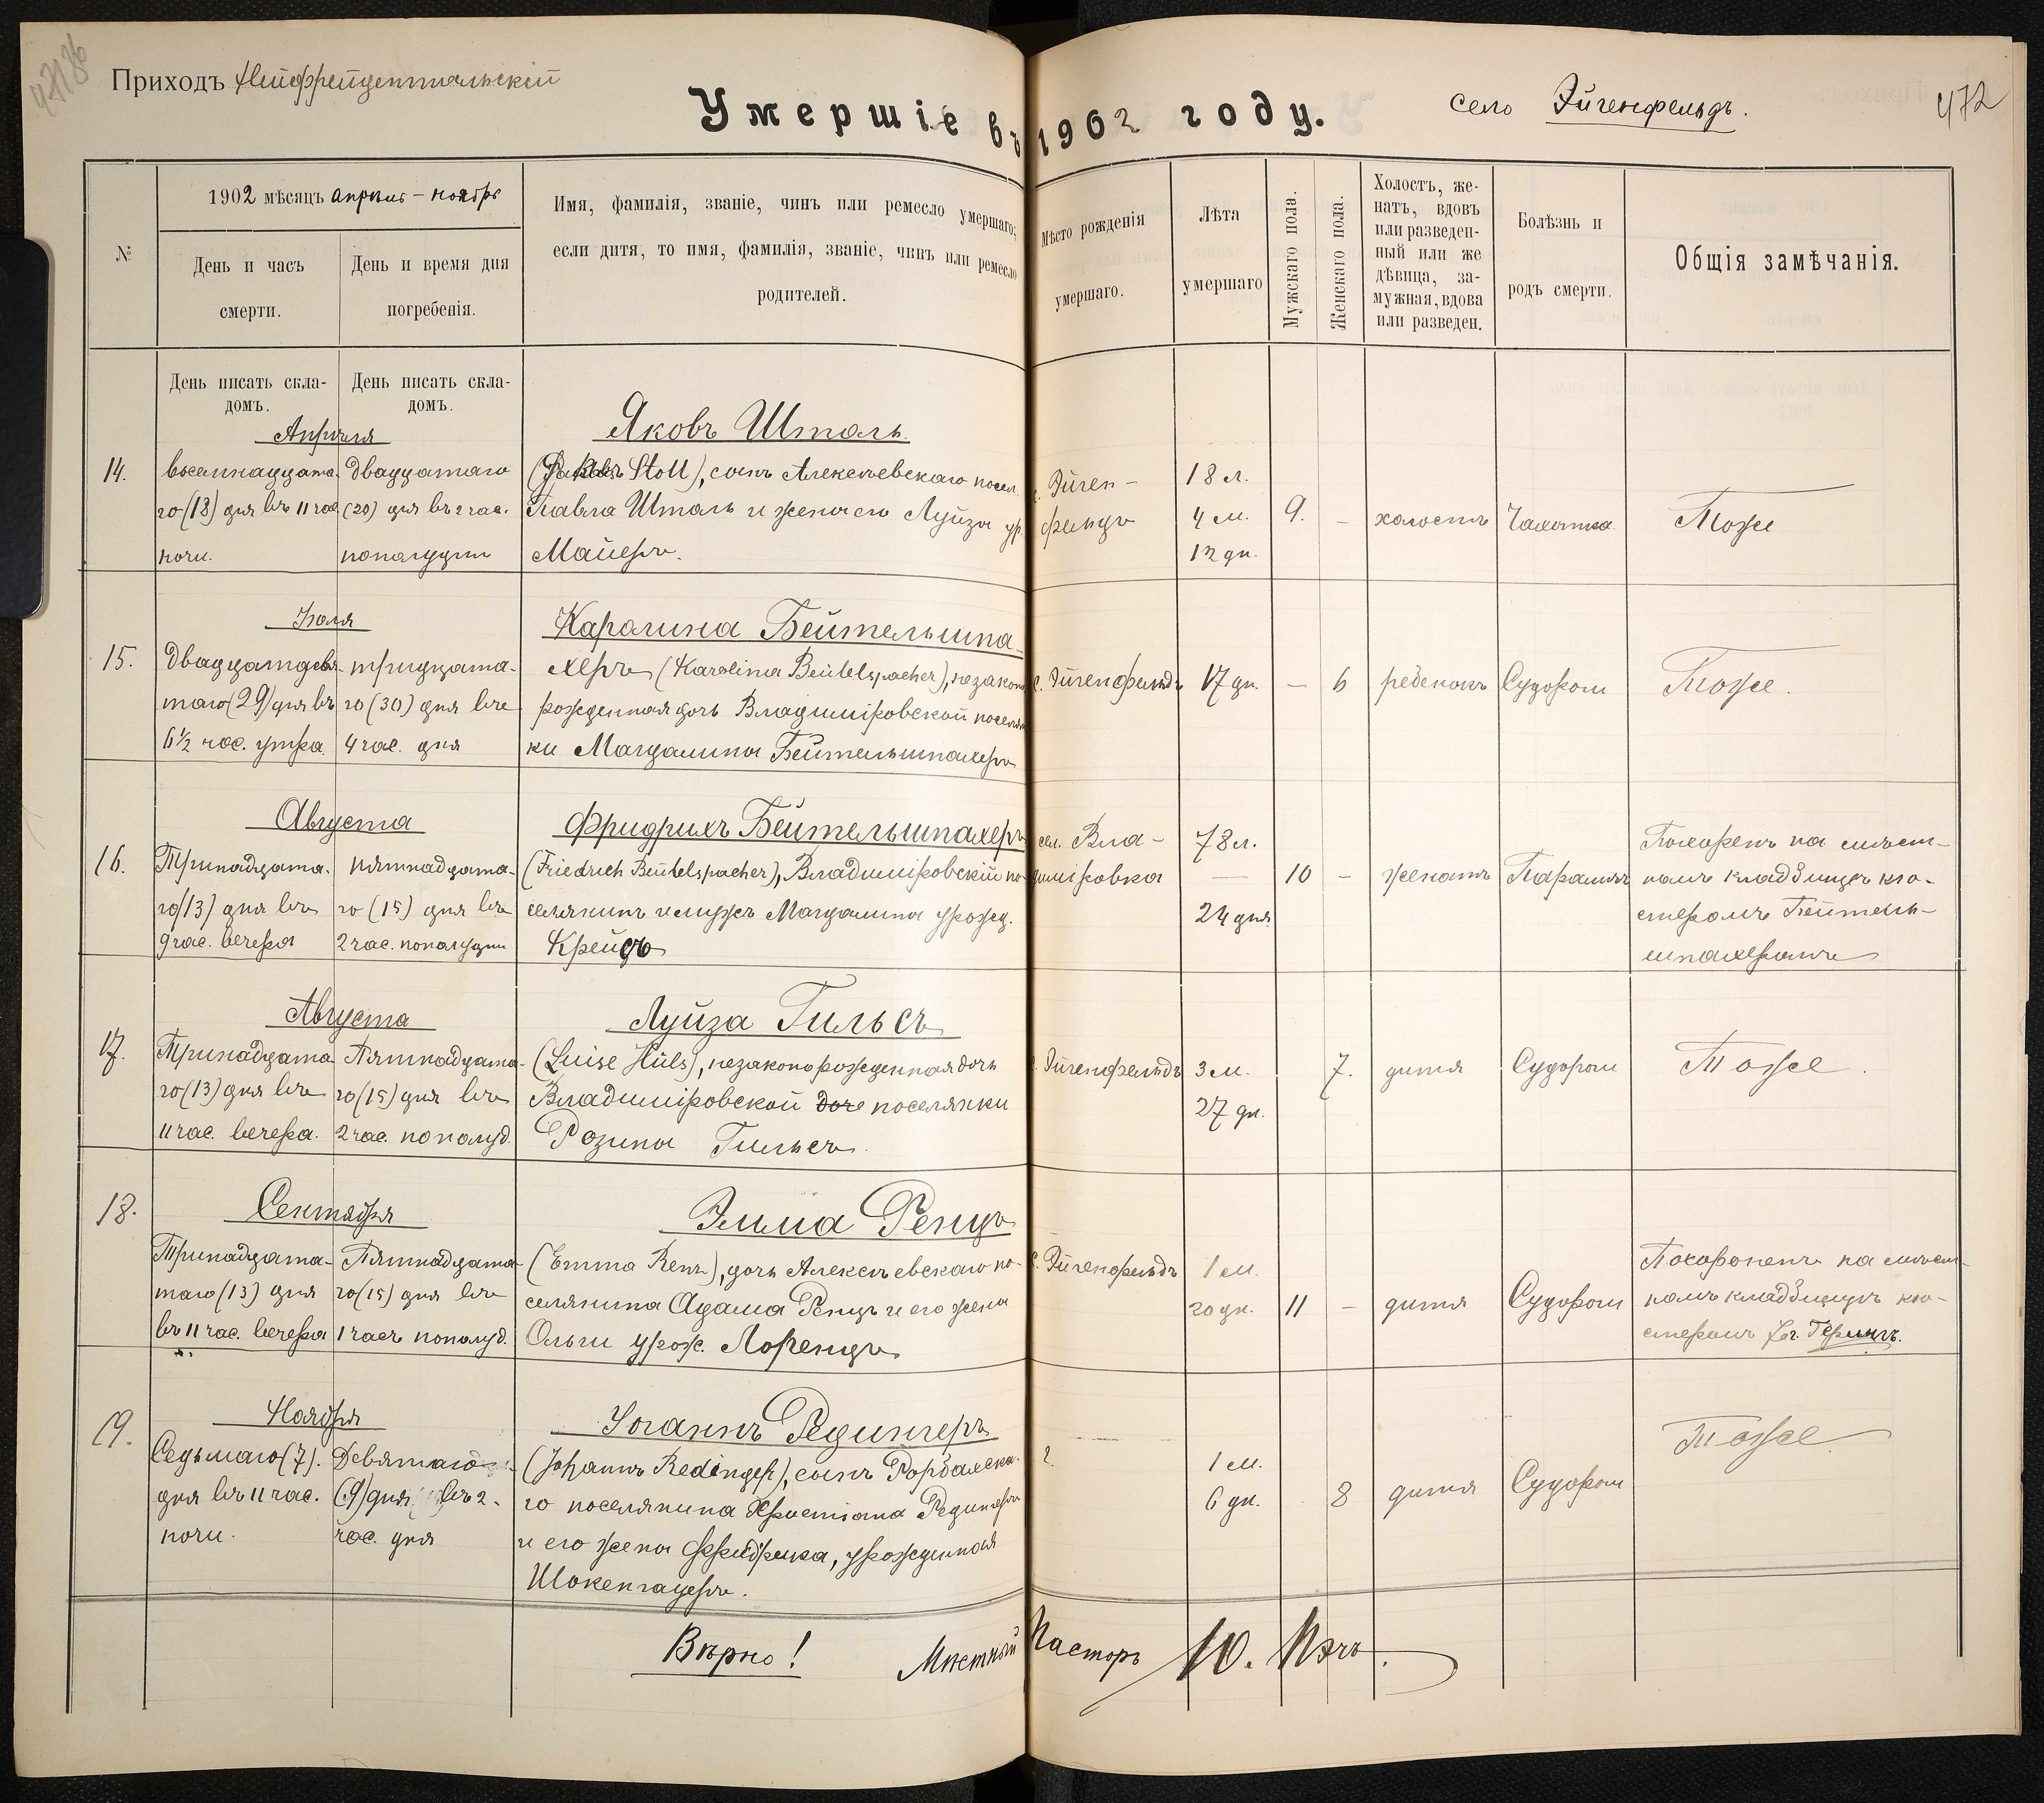 Приходъ Нейфрейдентальскій
Умершіе въ 1902 году.
село Эйгенфельдъ.
472
№
1902 мѣсяцъ Апрѣль – ноябрь
День и часъ
смерти.
День и время дня
погребенія.
Имя, фамилія, званіе, чинъ или ремесло умершаго;
если дитя, то имя, фамилія, званіе, чинъ или ремесло
родителей.
Мѣсто рожденія
умершаго.
Лѣта
умершаго
Мужскаго пола.
Женскаго пола.
Холостъ, же-
натъ, вдовъ
или разведен-
ный или же
дѣвица, за-
мужная, вдова
или разведен.
Болѣзнь и
родъ смерти.
Общія замѣчанія.
День писать скла-
домъ.
День писать скла-
домъ.
14.
Апрѣля
восемнадцата-
го (18) дня въ 11 час.
ночи.
двадцатаго
(20) дня въ 2 час.
пополудни
Яковъ Шталь.
Stoll), сынъ Алексѣевскаго посел.
Павла Шталь и жены его Луизы ур.
Майеръ.
с. Эйген-
фельдъ
18 л.
4 м.
12 дн.
9.
–
холостъ
Чахотка
Тоже
15.
Іюля
двадцатдевя-
таго (29) дня въ
6 1/2 час. утра
тридцата-
го (30) дня въ
4 час. дня
Каролина Бейтельшпа-
херъ (Karolina Beutelspacher), незаконо
рожденная дочь Владимировской поселян
ки Магдалины Бейтельшпахеръ
с. Эйгенфельдъ
17 дн.
–
6
ребенокъ
Судороги
Тоже.
16.
Августа
Тринадцата-
го (13) дня въ
9 час. вечера
пятнадцата-
го (15) дня въ
2 час. пополудни
Фридрихъ Бейтельшпахеръ
(Friedrich Beutelspacher), Владимировскій по-
селянинъ и мужъ Магдалины урожд.
Крейсъ
сел. Вла-
димировка
78 л.
—
24 дня
10
–
женатъ
Параличъ
Похоренъ на мѣст-
номъ кладбищѣ кю-
стеромъ Бейтель-
шпахеромъ
17.
Августа
Тринадцата-
го (13) дня въ
11 час. вечера.
Пятнадцата-
го (15) дня въ
2 час. пополуд.
Луиза Гильсъ
(Luise Hüls), незаконорожденная дочь
Владимировской доче поселянки
Розины Гильсъ.
с. Эйгенфельдъ
3 м.
27 дн.
7.
дитя
Судороги
Тоже.
18.
Сентября
Тринадцата-
таго (13) дня
въ 11 час. вечера
Пятнадцата-
го (15) дня въ
1 часъ пополуд.
Эмма Ренцъ
(Emma Renz), дочь Алексѣевскаго по-
селянина Адама Ренцъ и его жены
Ольги урож. Лоренцъ
с. Эйгенфельдъ
1 м.
20 дн.
11
–
дитя
Судороги
Похороненъ на мѣст-
номъ кладбищѣ кю-
стеромъ Герингъ.
19.
Ноября
Седьмаго (7).
дня въ 11 час.
ночи.
Девятаго
(9) дня въ 2-
час. дня
Іоганнъ Редингеръ
(Johann Redinger), сынъ Рорбахска-
го поселянина Христіана Редингеръ
и его жены Фридрика, урожденная
Шокенгауеръ.
1 м.
6 дн.
8
дитя
Судороги
Тоже
Вѣрно! Мѣстный Пасторъ